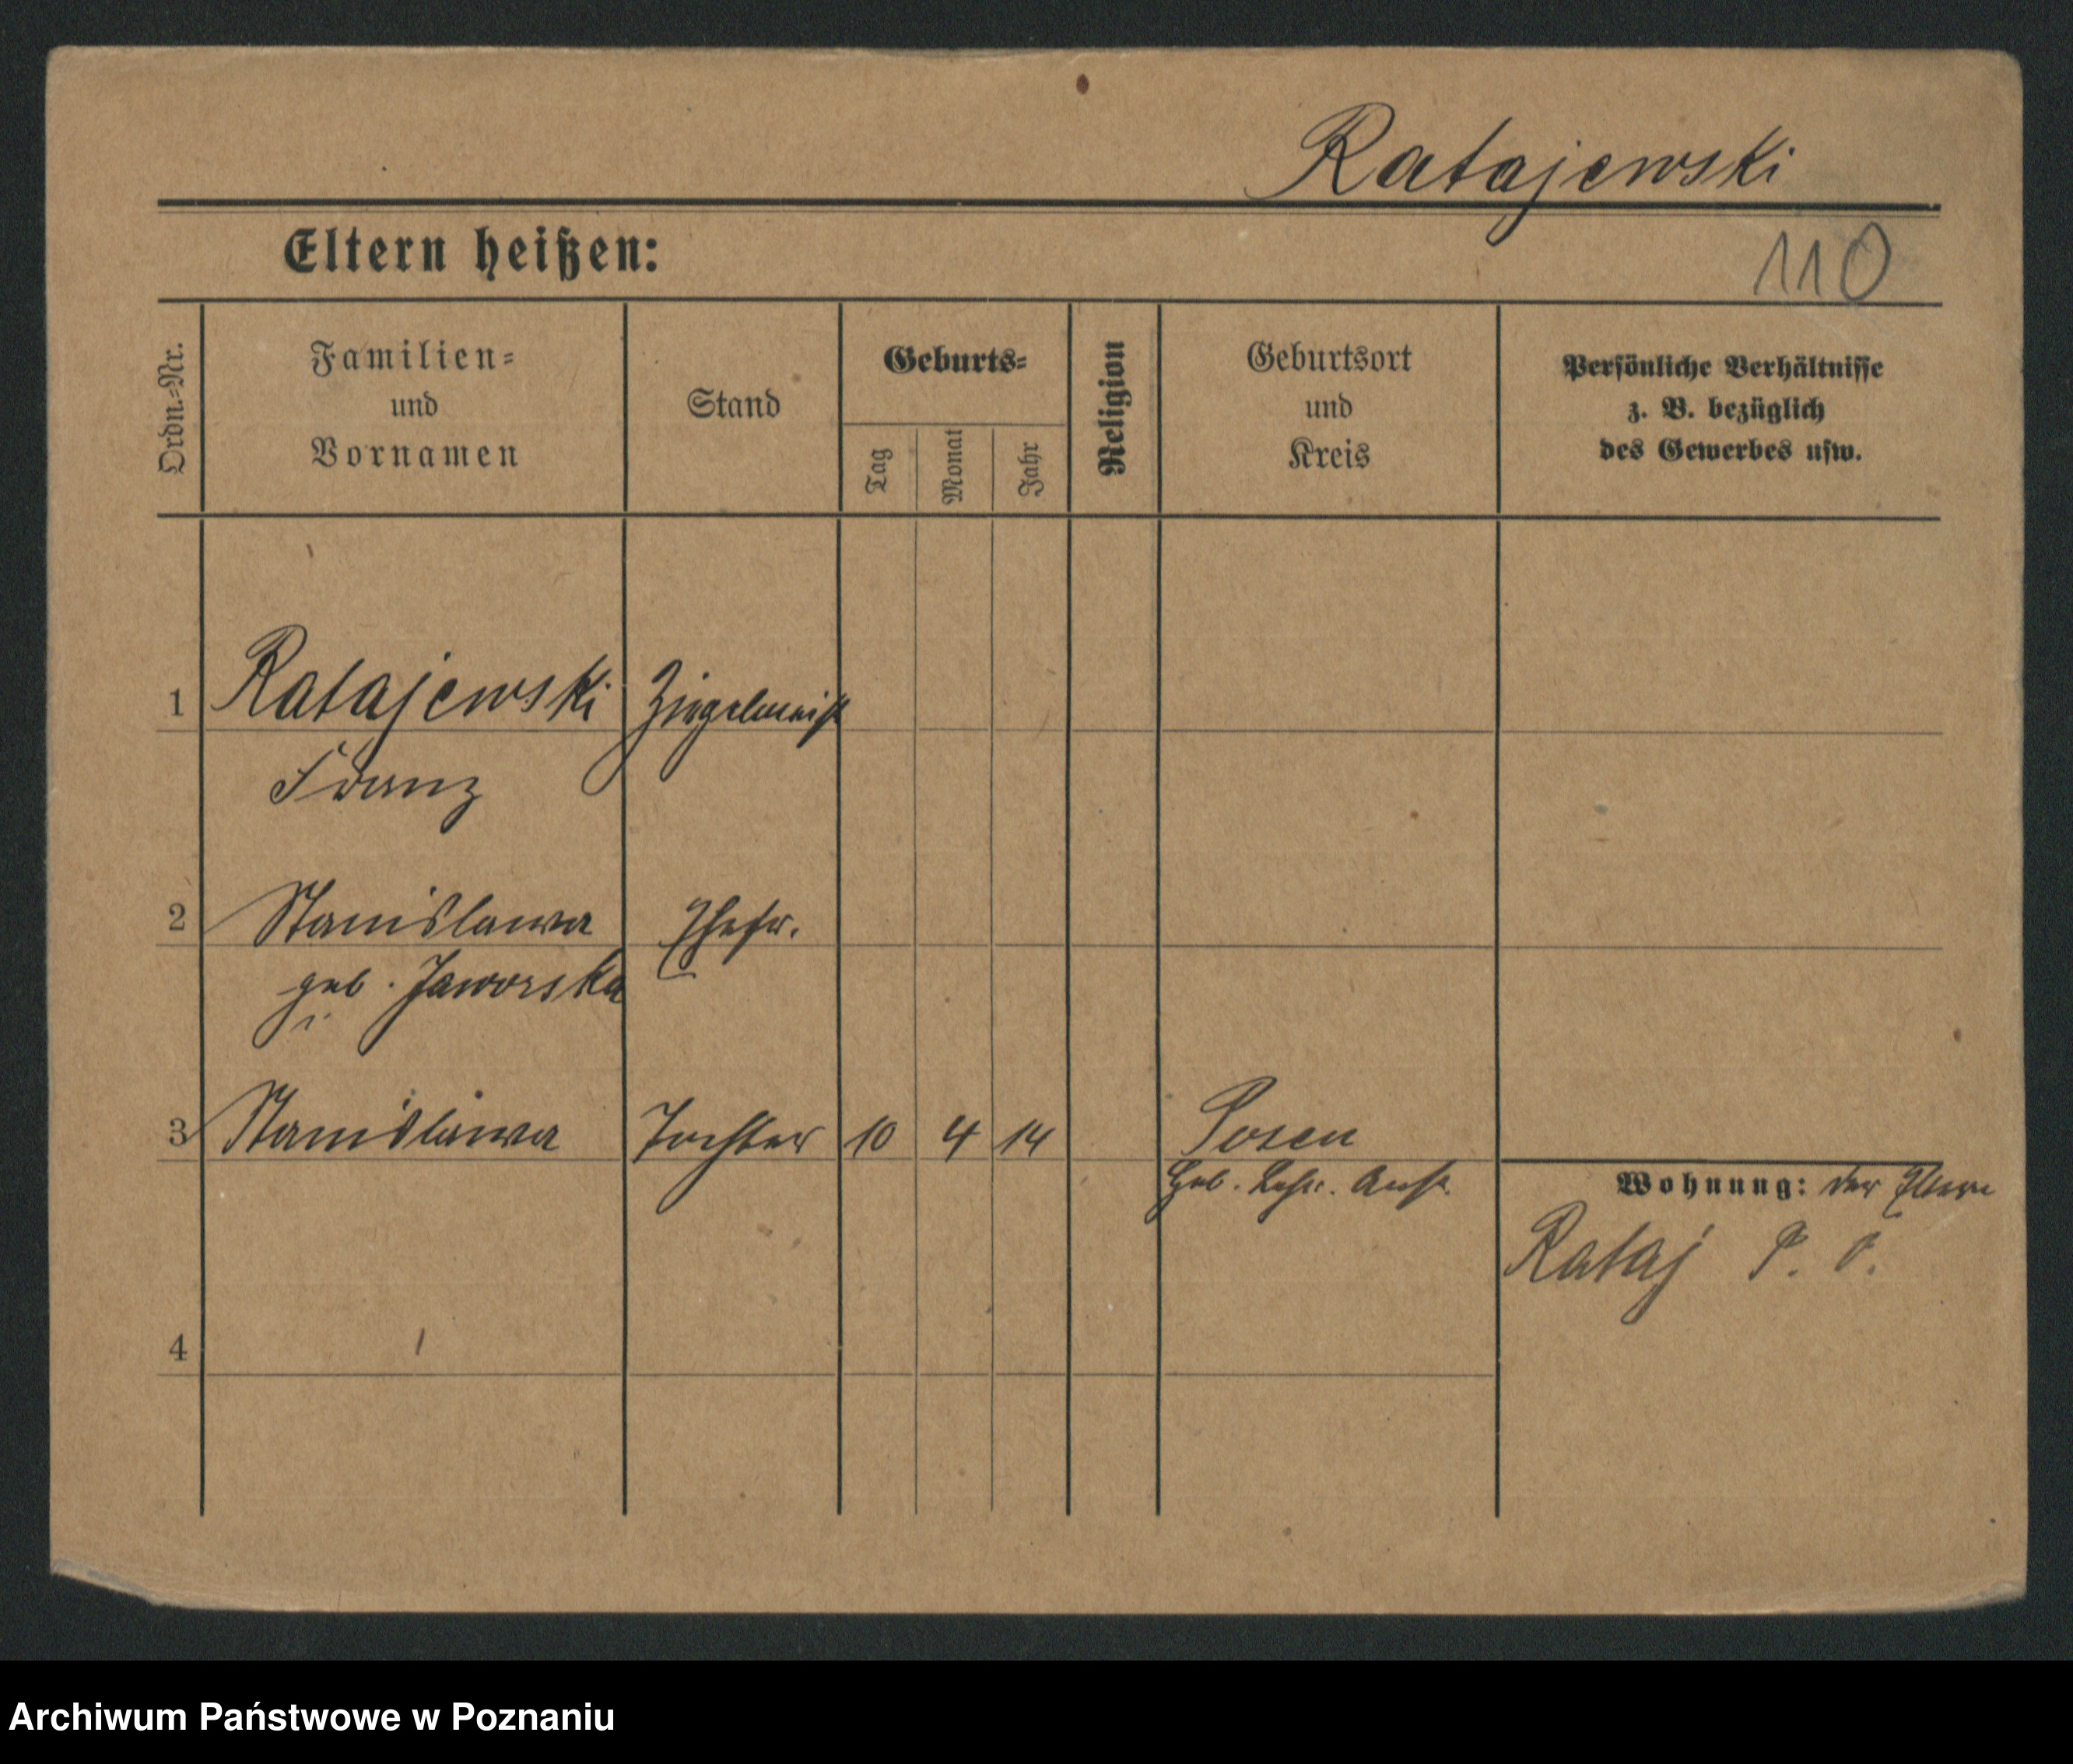 Ratajewski
Eltern heißen:
110
Ordn.-Nr.
Familien-
und
Vornamen
Stand
Geburts-
Tag
Monat
Jahr
Religion
Geburtsort
und
Kreis
Persönliche Verhältnisse
z. B. bezüglich
des Gewerbes usw.
1 Ratajewski Ziegelmeist
Franz
2 Stanislawa Ehefr.
geb. Jaworska
3 Stanislawa Tochter 10 4 14 Posen
Geb. Lehr. Anst.
Wohnung: der Eltern
Rataj P. O.
4
Archiwum Państwowe w Poznaniu